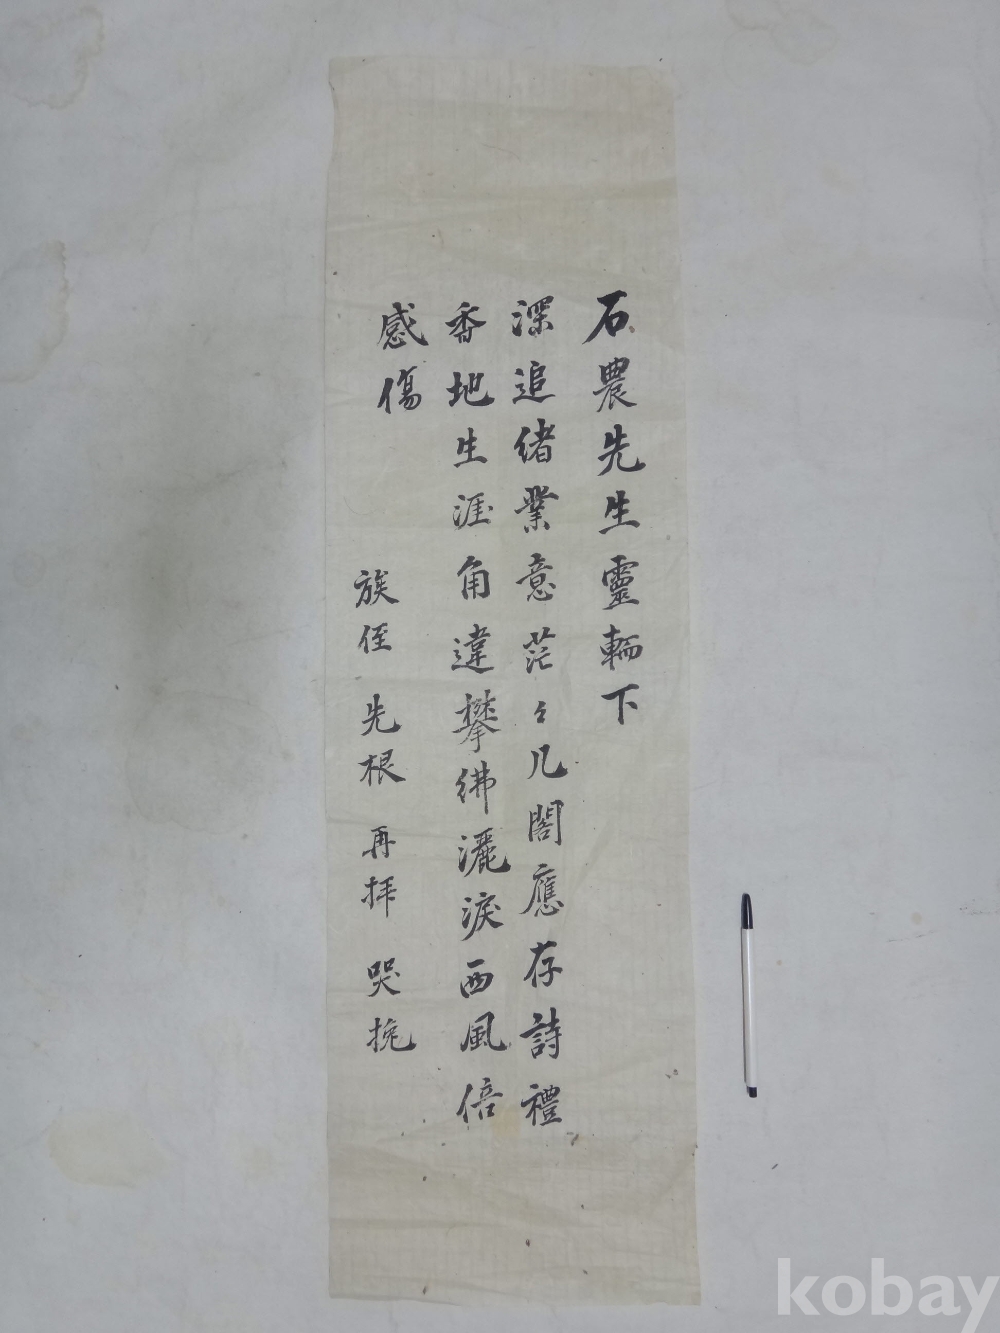 石農先生靈輀下
深追緖業意茫〻几閣應存詩禮
香地生涯角違攀紼灑淚西風倍
感傷
族侄 先根 再拜 哭挽
kobay